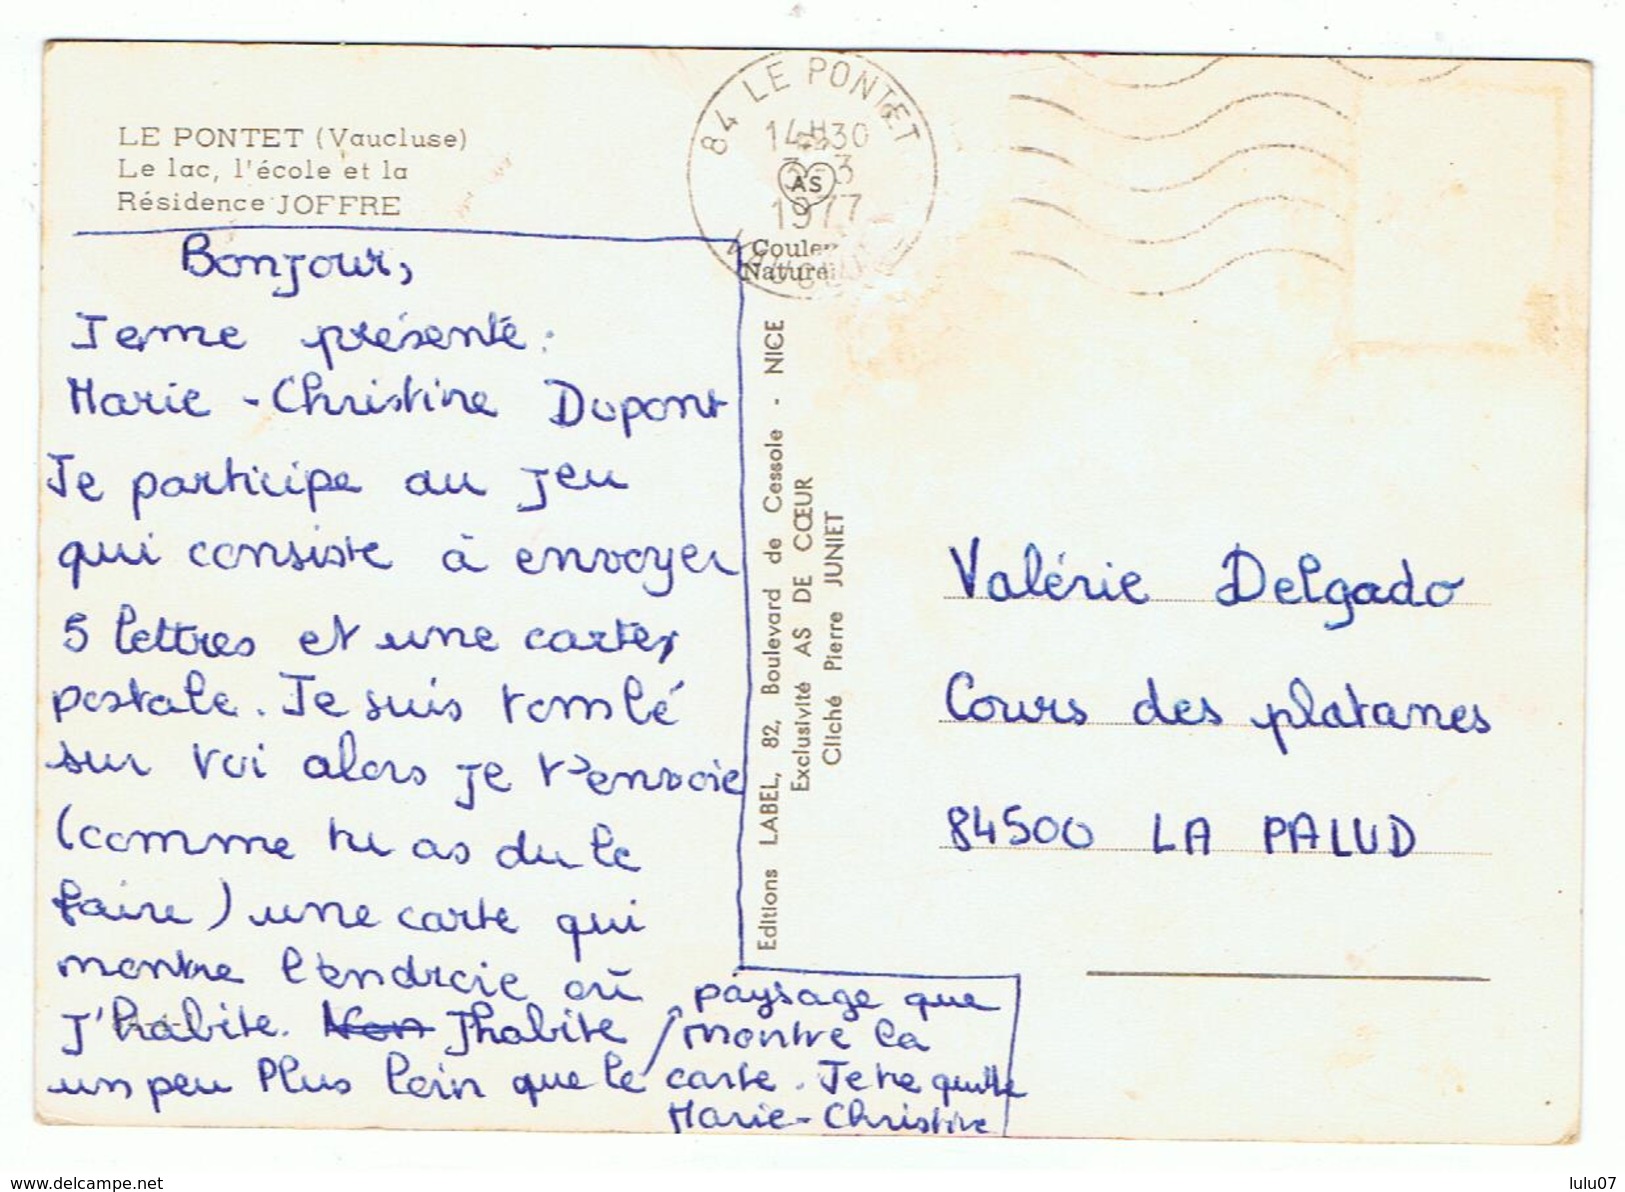 LE PONTET (Vaucluse)
Le lac, l'école et la
Résidence JOFFRE
84 LE PONTET
14H30
3-3
1977
VAUCLUSE
AS
Couleu
Nature
Bonjour,
Jeme présente:
Marie-Christine Dupont
Je participe au jeu
qui consiste à envoyer
5 lettres et une carte
postale. Je suis tomlé
sur toi alors je t'envoie
(comme tu as du le
faire) une carte qui
montre l'endroie où
j'habite. Non J'habite
un peu Plus loin que le
paysage que
montre la
carte. Je te quitte
Marie-Christine
Editions LABEL, 82, Boulevard de Cessole - NICE
Exclusivité AS DE CŒUR
Cliché Pierre JUNIET
Valérie Delgado
Cours des platanes
84500 LA PALUD
www.delcampe.net
lulu07